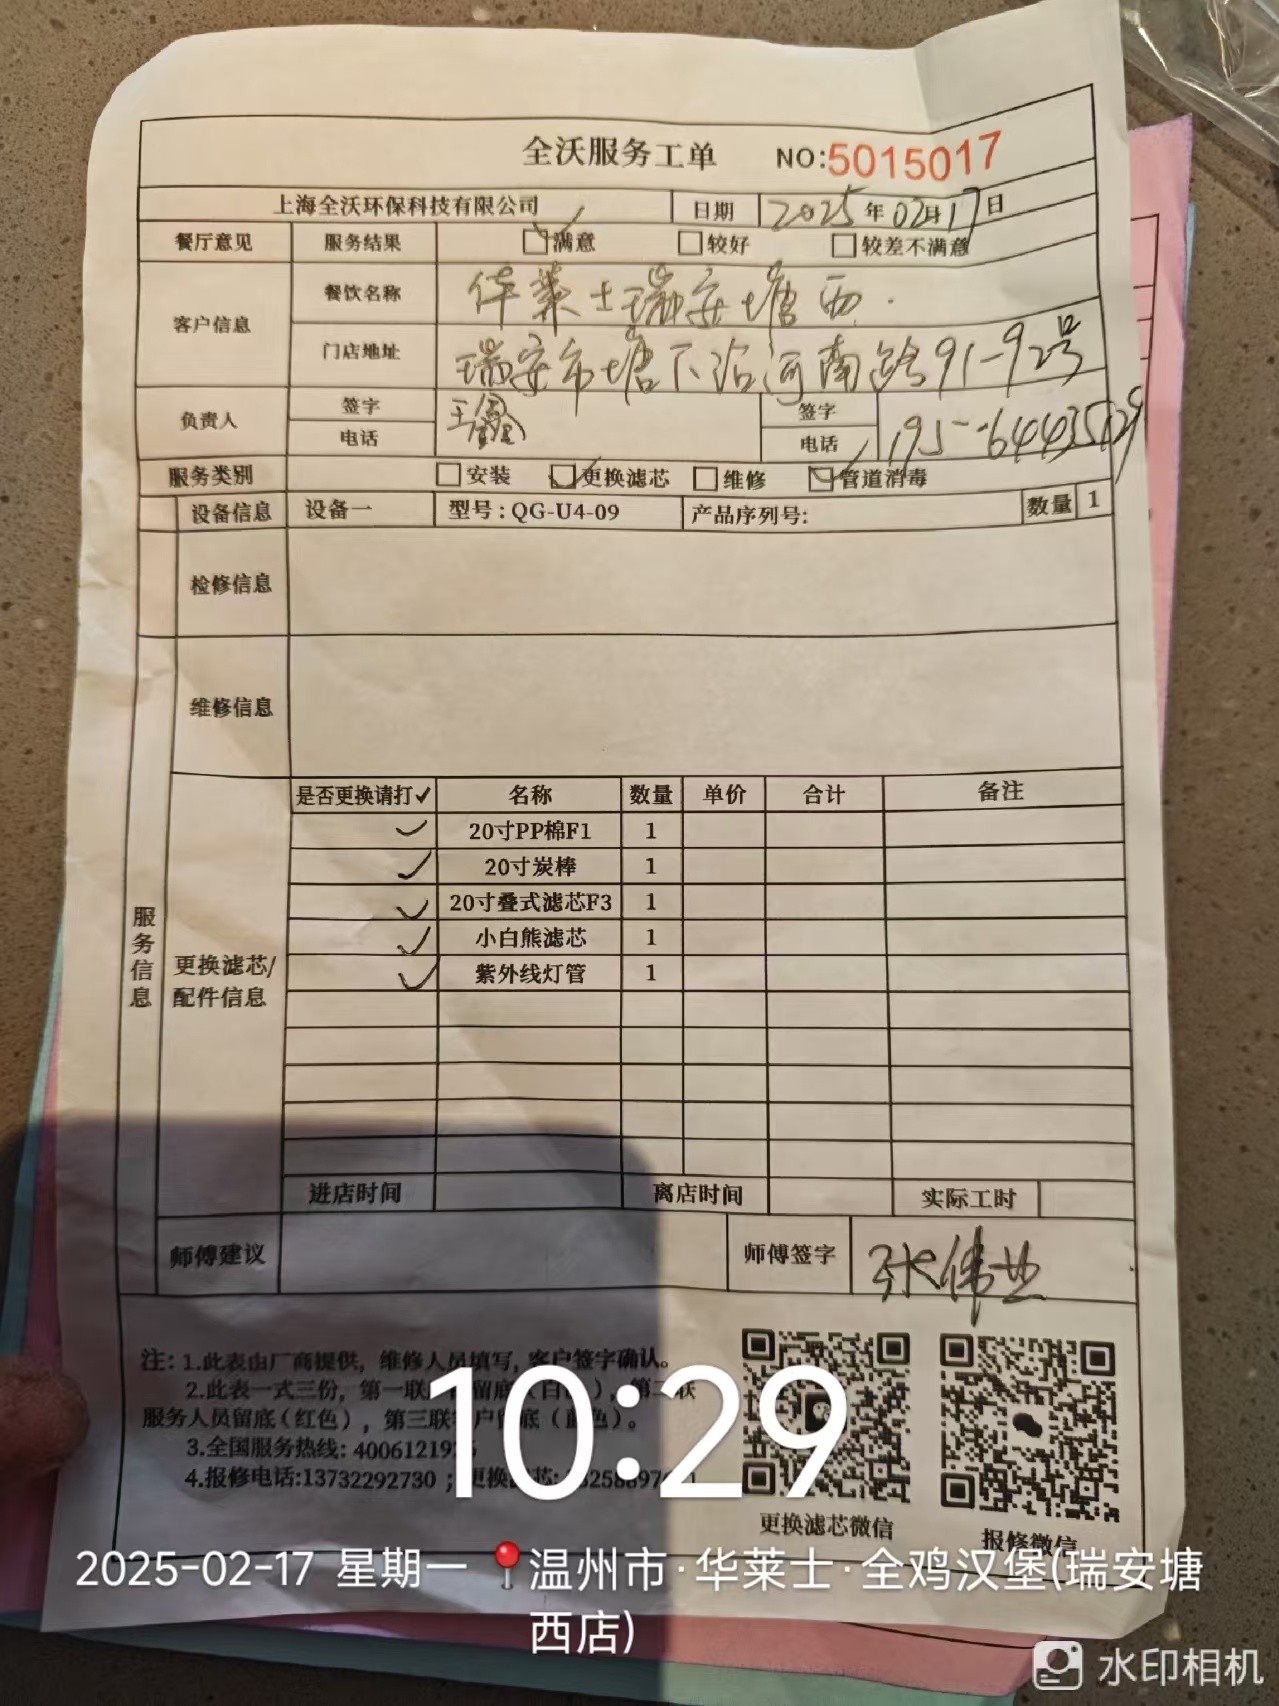 全沃服务工单 NO:5015017
上海全沃环保科技有限公司 日期 2025年02月17日
餐厅意见 服务结果 满意 较好 较差不满意
客户信息 餐饮名称 华莱士瑞安塘西
门店地址 瑞安市塘下沿河南路91-92号
负责人 签字 王鑫 签字
电话 电话
服务类别 安装 更换滤芯 维修 管道消毒
设备信息 设备一 型号:QG-U4-09 产品序列号: 数量 1
检修信息
维修信息
服务信息
更换滤芯/配件信息
是否更换请打✓ 名称 数量 单价 合计 备注
✓ 20寸PP棉F1 1
✓ 20寸炭棒 1
✓ 20寸叠式滤芯F3 1
✓ 小白熊滤芯 1
✓ 紫外线灯管 1
进店时间 离店时间 实际工时
师傅建议 师傅签字 张伟业
注:1.此表由厂商提供,维修人员填写,客户签字确认。
2.此表一式三份,第一联 留底(白 ),第二联
服务人员留底(红色),第三联客户留底(蓝色)。
3.全国服务热线:4006121
4.报修电话:13732292730;更换滤芯:
更换滤芯微信 报修微信
10:29
2025-02-17 星期一 温州市·华莱士·全鸡汉堡(瑞安塘
西店)
水印相机